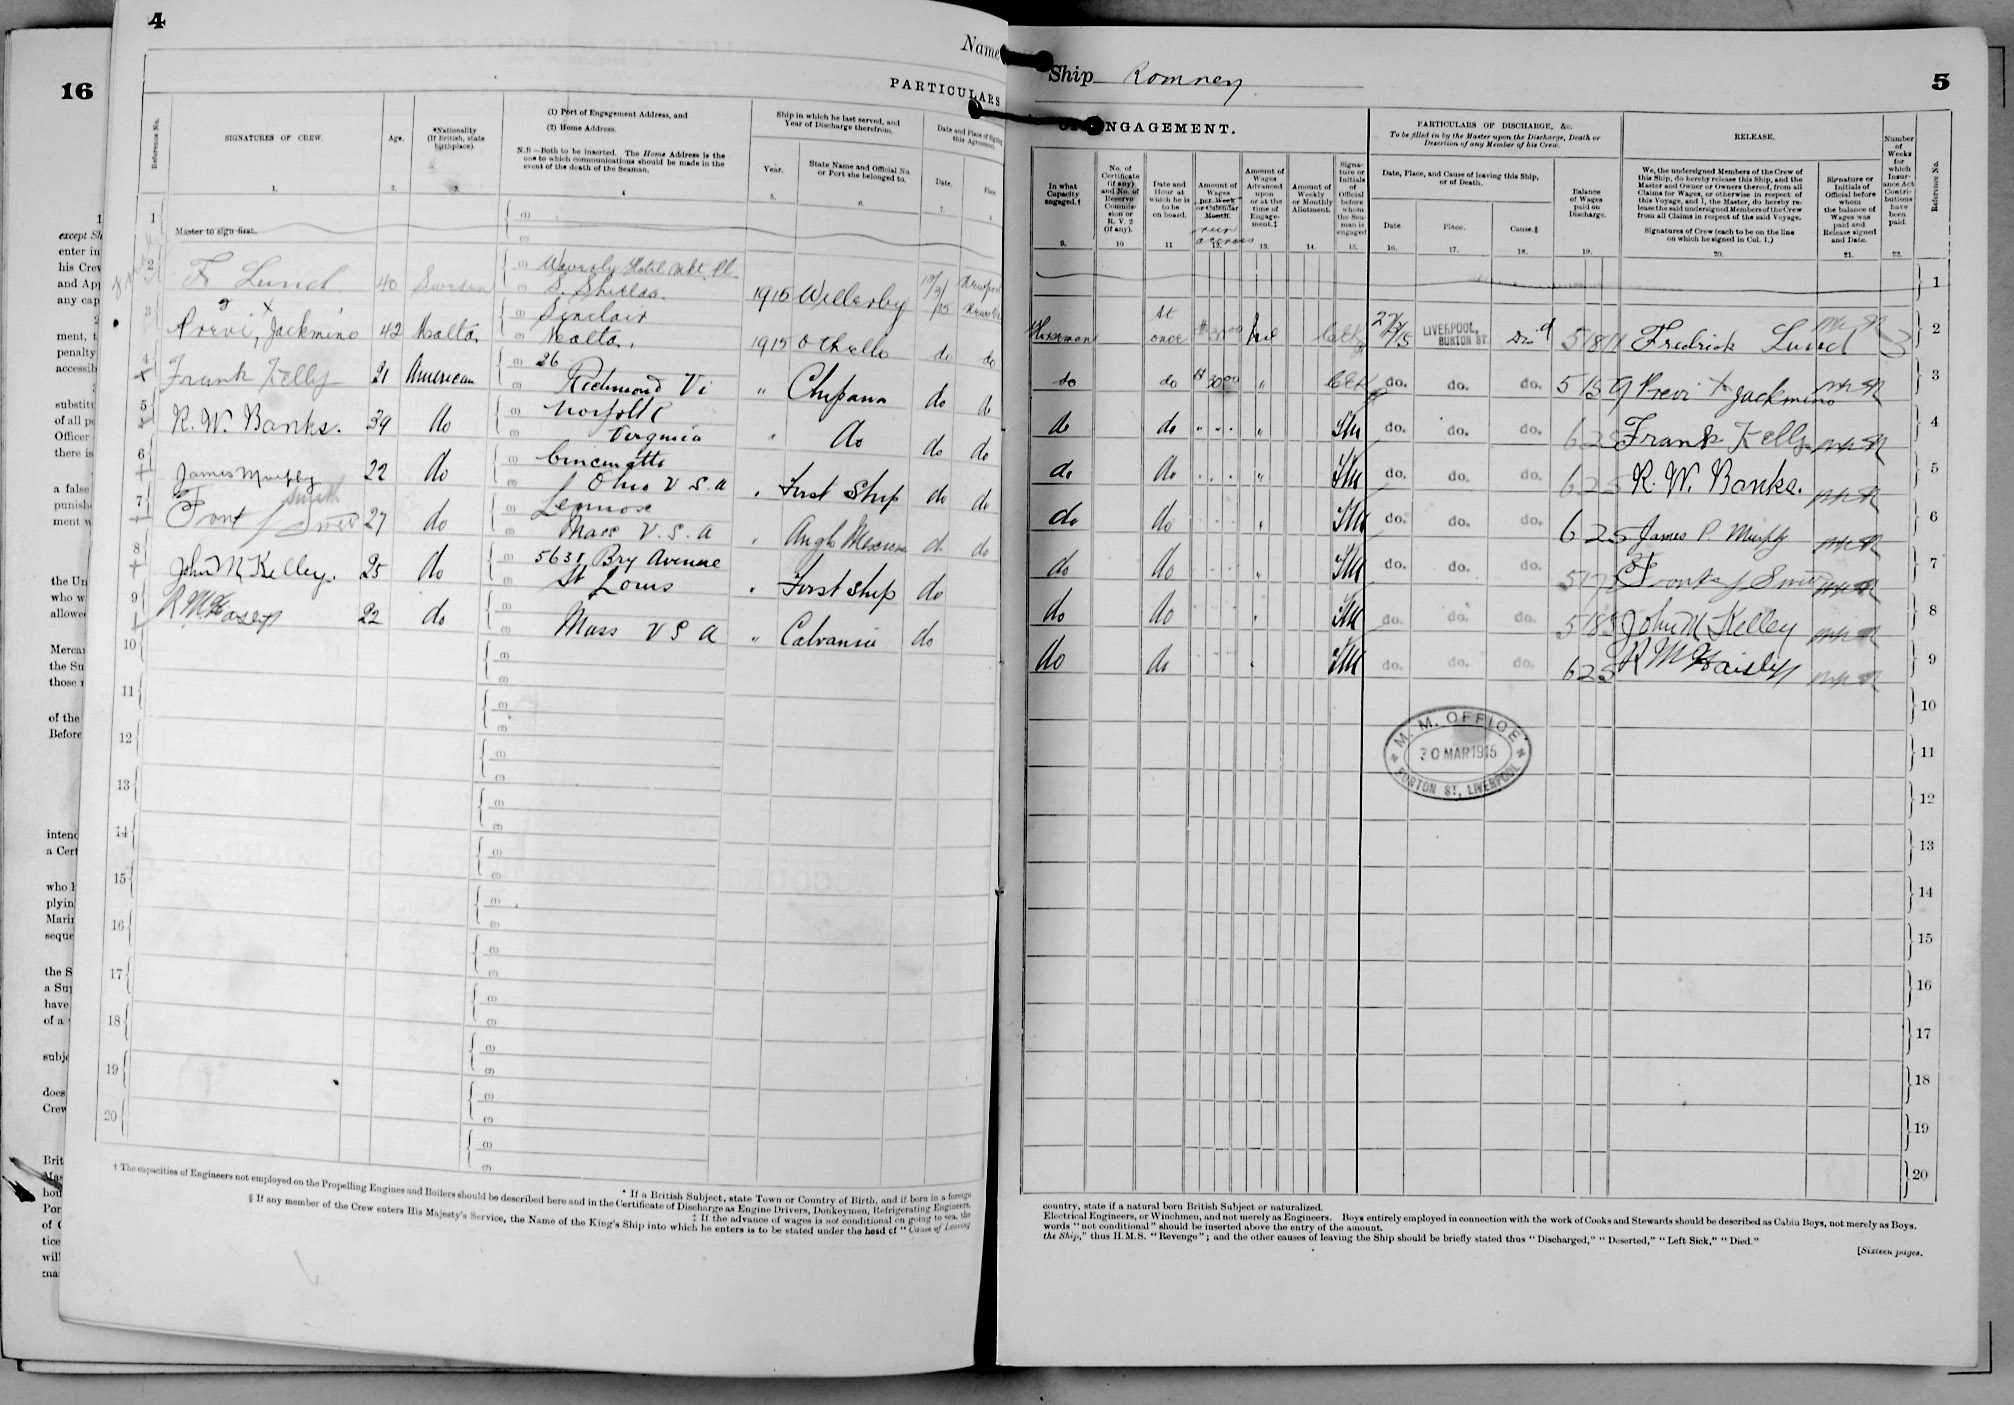 4
Name
PARTICULARS
16
Reference No.
SIGNATURES OF CREW.
Age.
*Nationality
(If British, state
birthplace).
(1) Port of Engagement Address, and
(2) Home Address.
N.B—Both to be inserted. The Home Address is the
one to which communications should be made in the
event of the death of the Seaman.
Ship in which he last served, and
Year of Discharge therefrom.
Year.
State Name and Official No.
or Port she belonged to.
Date and Place of Signing
this Agreement.
Date.
Place.
1. 2. 3. 4. 5. 6. 7. 8.
1 Master to sign first.
2 F Lund 40 Sweden Waverly Hotel Mkt Pl
S. Shields. 1915 Willerby
3 Previ, X Jackmino 42 Malta Sinclair
Malta. 1915 Othello do do
4 Frank Kelly 21 American 26
Richmond Vi " Chipana do do
5 R. W. Banks. 39 do Norfolk
Virginia " do do do
6 James Murphy 22 do Cincinatto
Ohio U S. A First Ship do do
7 Smith 27 do
Mass U. S. A Anglo Mexican do do
8 John M Kelley. 25 do 5631 Bry Avenue
St Louis First Ship do
9 22 do
Mass U S A " do
10
11
12
13
14
15
16
17
18
19
20
* If a British Subject, state Town or Country of Birth, and if born in a foreign
† The capacities of Engineers not employed on the Propelling Engines and Boilers should be described here and in the Certificate of Discharge as Engine Drivers, Donkeymen, Refrigerating Engineers,
‡ If the advance of wages is not conditional on going to sea, the
§ If any member of the Crew enters His Majesty's Service, the Name of the King's Ship into which he enters is to be stated under the head of "Cause of Leaving
Ship Romney
5
OF ENGAGEMENT.
In what
Capacity
engaged.†
No. of
Certificate
(if any)
and No. of
Reserve
Commis-
sion or
R. V. 2
(if any).
Date and
Hour at
which he is
to be
on board.
Amount of
Wages
per Week
or Calendar
Month.
run
across
Amount of
Wages
Advanced
upon
or at the
time of
Engage-
ment.‡
Amount of
Weekly
or Monthly
Allotment.
Signa-
ture or
Initials
of
Official
before
whom
the Sea-
man is
engaged
PARTICULARS OF DISCHARGE, &c.
To be filled in by the Master upon the Discharge, Death or
Desertion of any Member of his Crew.
Date, Place, and Cause of leaving this Ship,
or of Death.
Date
Place.
Cause.§
Balance
of Wages
paid on
Discharge.
RELEASE.
We, the undersigned Members of the Crew of
this Ship, do hereby release this Ship, and the
Master and Owner or Owners thereof, from all
Claims for Wages, or otherwise in respect of
this Voyage, and I, the Master, do hereby re-
lease the said undersigned Members of the Crew
from all Claims in respect of the said Voyage.
Signatures of Crew (each to be on the line
on which he signed in Col. 1.)
Signature or
Initials of
Official before
whom
the balance of
Wages was
paid and
Release signed
and Date.
Number
of
Weeks
for
which
Insur-
ance Act
Contri-
butions
have
been
paid.
Reference No.
9. 10 11 12. 13. 14. 15. 16. 17. 18. 19. 20. 21. 22.
1
Horseman At
once Nil LIVERPOOL,
BURTON ST. Fredrick Lund 3 2
do do " do. do. do. 5 15 9 Previ X Jackmino 3
do do " do. do. do. 6 2 5 Frank Kelly 4
do do " do. do. do. 6 2 5 R. W. Banks. 5
do do " do. do. do. 6 2 5 James P. Murphy 6
do do " do. do. do. 7
do do " do. do. do. John M Kelley 8
do do do. do. do. 6 2 5 9
10
11
12
13
14
15
16
17
18
19
20
M. M. OFFICE
30 MAR 1915
BURTON ST, LIVERPOOL
country, state if a natural born British Subject or naturalized.
Electrical Engineers, or Winchmen, and not merely as Engineers. Boys entirely employed in connection with the work of Cooks and Stewards should be described as Cabin Boys, not merely as Boys.
words "not conditional" should be inserted above the entry of the amount.
the Ship," thus H.M.S. "Revenge"; and the other causes of leaving the Ship should be briefly stated thus "Discharged," "Deserted," "Left Sick," "Died."
[Sixteen pages.